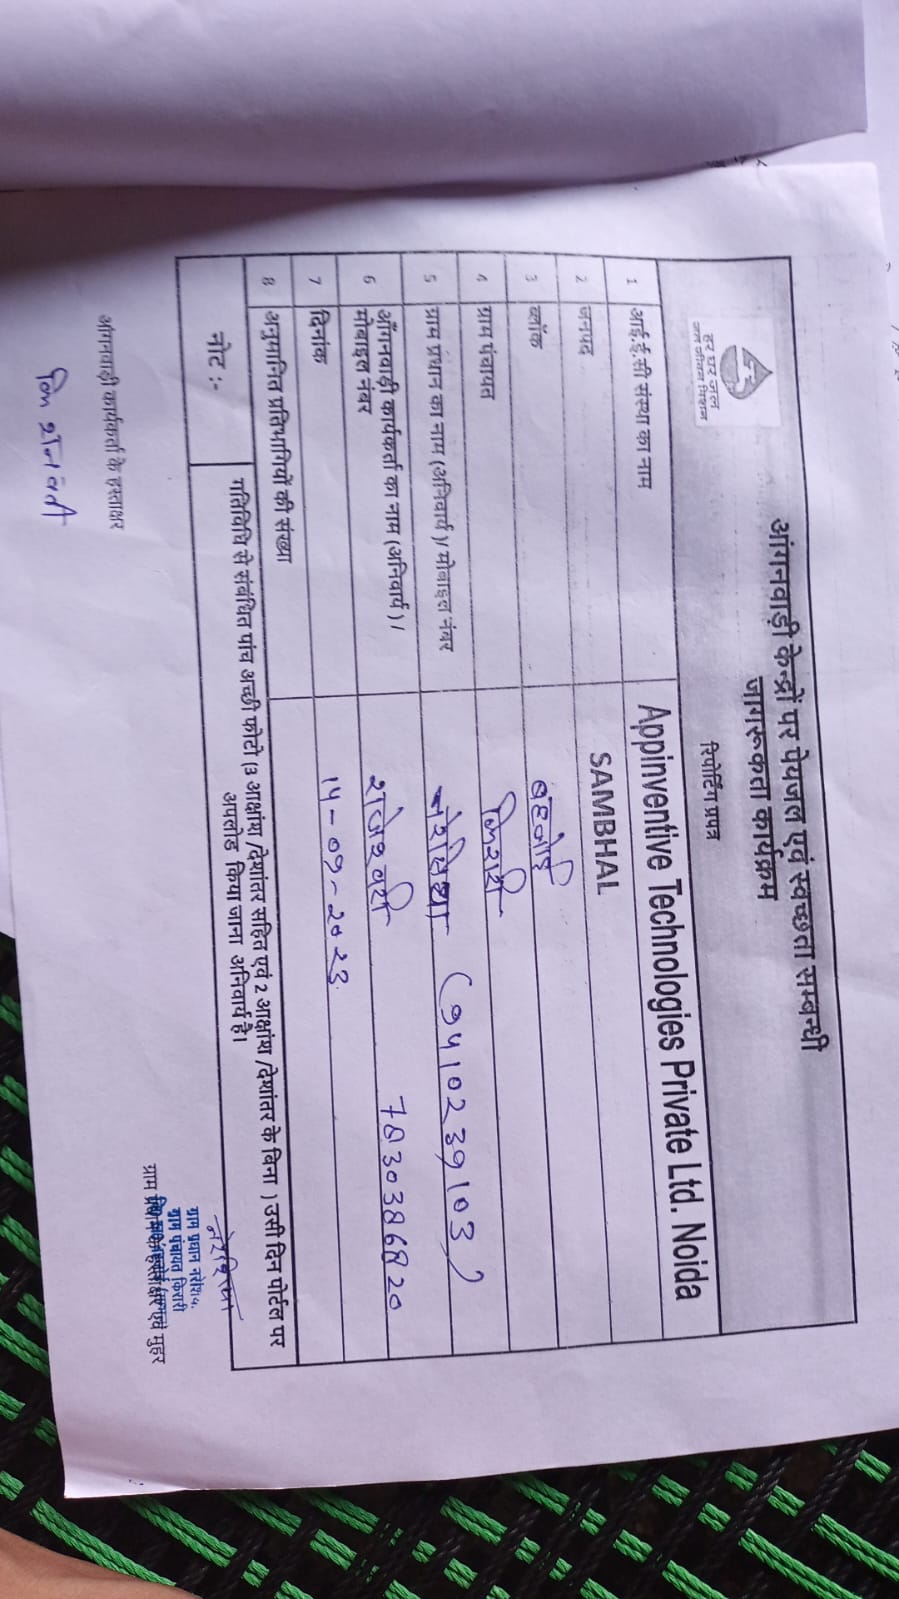 आंगनवाड़ी केन्द्रों पर पेयजल एवं स्वच्छता सम्बन्धी
जागरूकता कार्यक्रम
रिपोर्टिंग प्रपत्र
हर घर जल
जल जीवन मिशन
1 आई.ई.सी संस्था का नाम Appinventive Technologies Private Ltd. Noida
2 जनपद SAMBHAL
3 ब्लॉक बहजोई
4 ग्राम पंचायत किरारी
5 ग्राम प्रधान का नाम (अनिवार्य)/ मोबाइल नंबर (9410239103)
6 ऑगनवाड़ी कार्यकर्ता का नाम (अनिवार्य) /
मोबाइल नंबर
7 दिनांक १५-०७-२०२३
8 अनुमानित प्रतिभागियों की संख्या
नोट :- गतिविधि से संबंधित पांच अच्छी फोटो (3 आक्षांश /देशांतर सहित एवं 2 आक्षांश /देशांतर के बिना ) उसी दिन पोर्टल पर
अपलोड किया जाना अनिवार्य है।
आंगनवाड़ी कार्यकर्ता के हस्ताक्षर
ग्राम प्रधान
ग्राम पंचायत किरारी
एवं मुहर